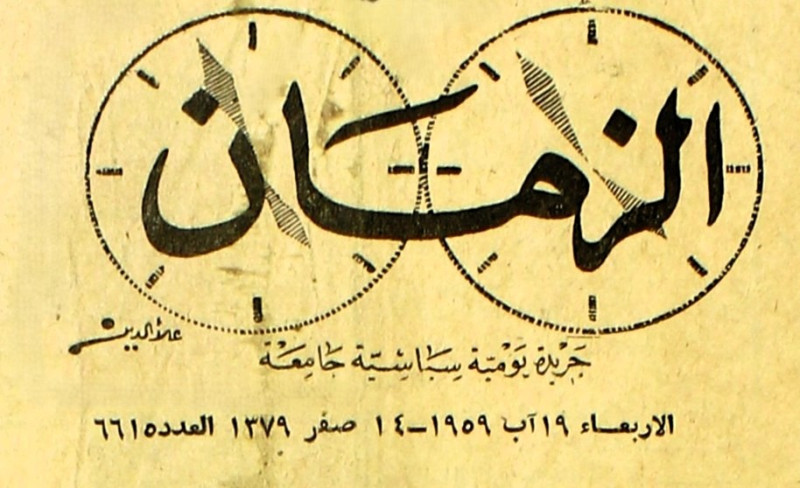 الزمان
علاء الدين
جَرِيْدة يَوْمِيّة سِيَاسِيّة جَامِعَة
الاربعاء ١٩ آب ١٩٥٩ــ١٤ صفر ١٣٧٩ العدد ٦٦١٥